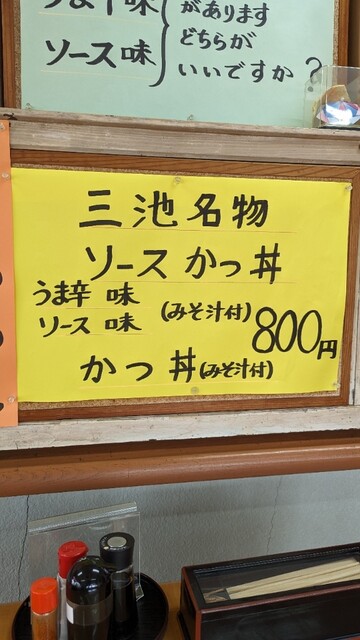 うま辛味
ソース味
があります
どちらが
いいですか?
三池名物
ソースかつ丼
うま辛 味
ソース 味
(みそ汁付)
800円
かつ丼(みそ汁付)